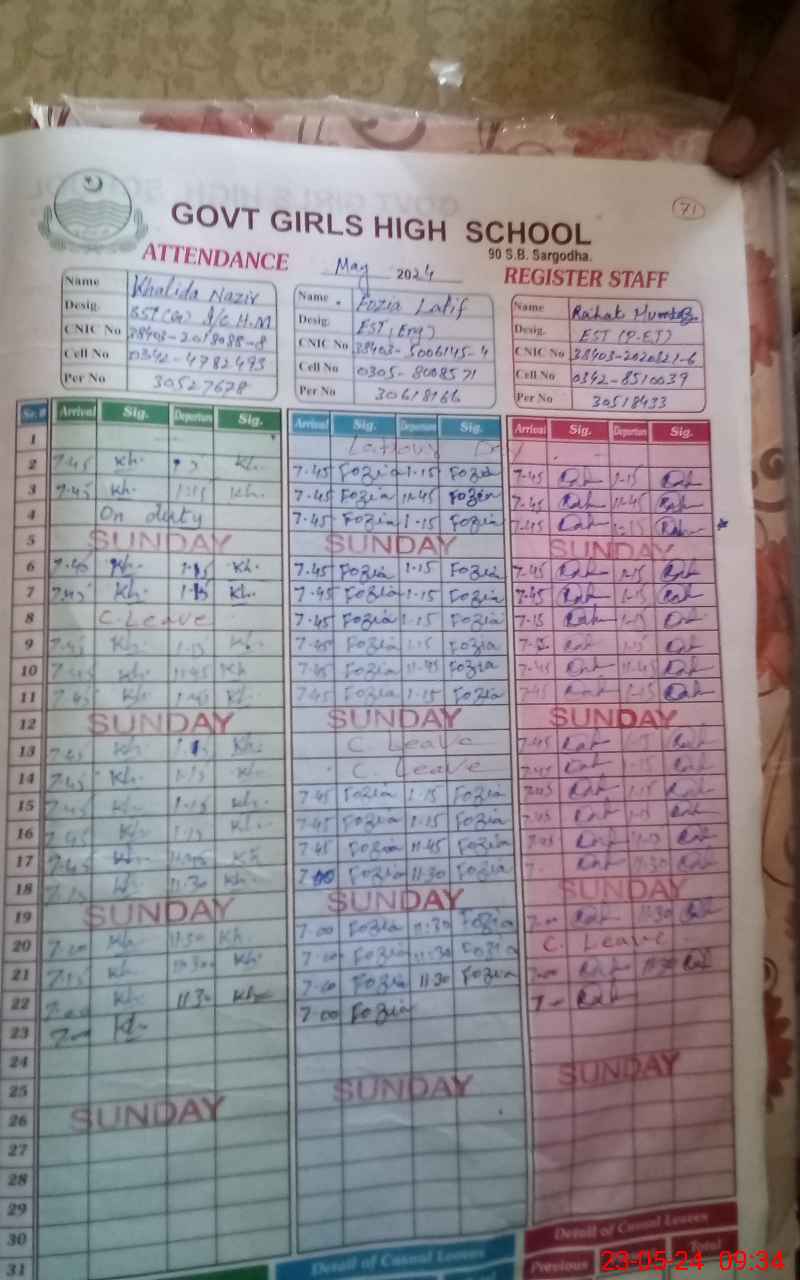 GOVT GIRLS HIGH SCHOOL
71
90 S.B. Sargodha.
ATTENDANCE May 2024 REGISTER STAFF
Name Khalida Nazir Name Fozia Latif Name Rahat Mumtaz
Desig. Desig. EST (Eng) Desig. EST (P.ET)
CNIC No CNIC No 38403-5006145-4 CNIC No
Cell No 0342-4782493 Cell No 0305-8008571 Cell No 0342-8510039
Per No 30527678 Per No 30618166 Per No 30518433
Sr.# Arrival Sig. Departure Sig. Arrival Sig. Departure Sig. Arrival Sig. Departure Sig.
1
2 7.45 Kh. Kh. 7.45 Fozia 1.15 Fozia 7.45 Rah 1.15 Rah
3 7.45 Kh. 1.15 Kh. 7.45 Fozia 11.45 Fozia 7.45 Rah 11.45 Rah
4 On duty 7.45 Fozia 1.15 Fozia 7.45 Rah 1.15 Rah
5 SUNDAY SUNDAY SUNDAY
6 7.45 Kh. 1.15 Kh. 7.45 Fozia 1.15 Fozia 7.45 Rah 1.15 Rah
7 7.45 Kh. 1.15 Kh. 7.45 Fozia 1.15 Fozia 7.45 Rah 1.15 Rah
8 C. Leave 7.45 Fozia 1.15 Fozia Rah 1.15 Rah
9 7.45 Kh. 1.15 Kh. 7.45 Fozia 1.15 Fozia Rah 1.15 Rah
10 7.45 Kh. 11.45 Kh 7.45 Fozia 11.45 Fozia 7.45 Rah 11.45 Rah
11 7.45 Kh. Kh. 7.45 Fozia 1.15 Fozia 7.45 Rah 1.15 Rah
12 SUNDAY SUNDAY SUNDAY
13 7.45 Kh. Kh. C. Leave 7.45 Rah 1.15 Rah
14 7.45 Kh. 1.15 Kh. C. Leave 7.45 Rah 1.15 Rah
15 7.45 Kh. 1.15 Kh. 7.45 Fozia 1.15 Fozia 7.45 Rah 1.15 Rah
16 7.45 Kh. 1.15 Kh. 7.45 Fozia 1.15 Fozia 7.45 Rah 1.15 Rah
17 7.45 Kh. 11.45 Kh 7.45 Fozia 11.45 Fozia 7.45 Rah Rah
18 Kh. 11.30 Kh. 7.00 Fozia 11.30 Fozia Rah 11.30 Rah
19 SUNDAY SUNDAY SUNDAY
20 7.00 Kh. 11.30 Kh. 7.00 Fozia 11.30 Fozia 7.00 Rah 11.30 Rah
21 Kh. 11.30 Kh. 7.00 Fozia 11.30 Fozia C. Leave
22 7.00 Kh. 11.30 Kh 7.00 Fozia 11.30 Fozia 7.00 Rah 11.30 Rah
23 7.00 Kh. 7.00 Fozia Rah
24
25
26 SUNDAY SUNDAY SUNDAY
27
28
29
30
31
Detail of Casual Leaves Detail of Casual Leaves
Previous Total
23-05-24 09:34